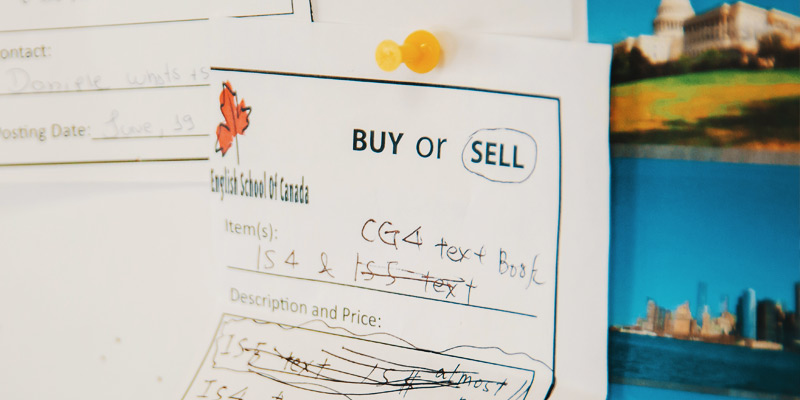 ontact:
Daniele whats +5
Posting Date: June, 19
BUY or SELL
English School Of Canada
Item(s):
CG4 text Book
IS 4 & IS 5 text
Description and Price:
IS5 text IS# almost
IS4 t